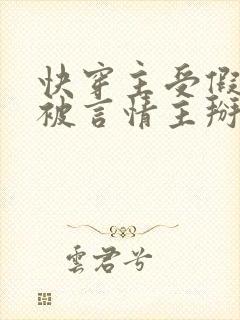 快穿主受假
被言情主掰
雲君兮